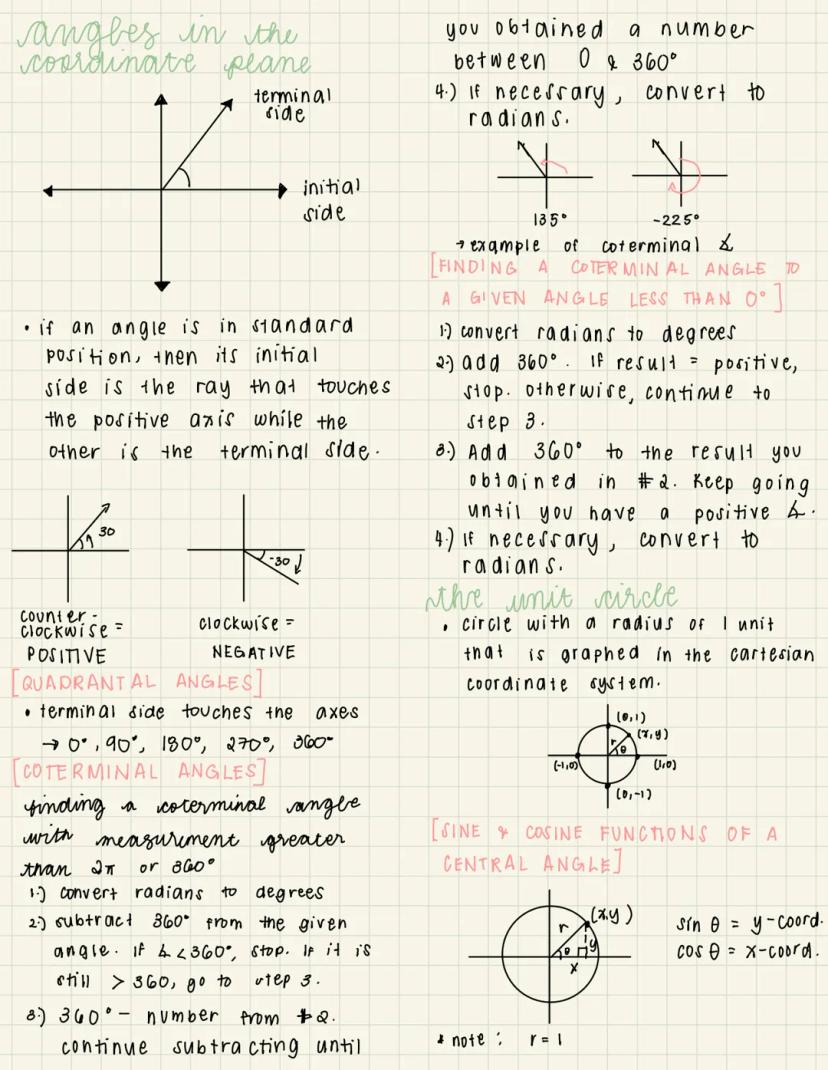 angles in the
coordinate plane
terminal
side
initial
side
• if an angle is in standard
position, then its initial
side is the ray that touches
the positive axis while the
other is the terminal side.
30
-30
counter-
clockwise =
POSITIVE
clockwise =
NEGATIVE
[QUADRANTAL ANGLES]
• terminal side touches the axes
→ 0°, 90°, 180°, 270°, 360°
[COTERMINAL ANGLES]
finding a coterminal angle
with measurement greater
than 2π or 360°
1.) convert radians to degrees
2.) subtract 360° from the given
angle. if ∡ < 360°, stop. If it is
still > 360, go to step 3.
3.) 360° - number from #2.
continue subtracting until
you obtained a number
between 0 & 360°
4.) If necessary, convert to
radians.
135°
-225°
→ example of coterminal ∡
[FINDING A COTERMINAL ANGLE TO
A GIVEN ANGLE LESS THAN 0°]
1.) convert radians to degrees
2.) add 360°. If result = positive,
stop. otherwise, continue to
step 3.
3.) Add 360° to the result you
obtained in #2. Keep going
until you have a positive ∡.
4.) If necessary, convert to
radians.
the unit circle
• circle with a radius of 1 unit
that is graphed in the cartesian
coordinate system.
(0,1)
(x,y)
r
θ
(-1,0)
(1,0)
(0,-1)
[SINE & COSINE FUNCTIONS OF A
CENTRAL ANGLE]
(x,y)
r
y
θ
x
sin θ = y-coord.
cos θ = x-coord.
* note: r = 1